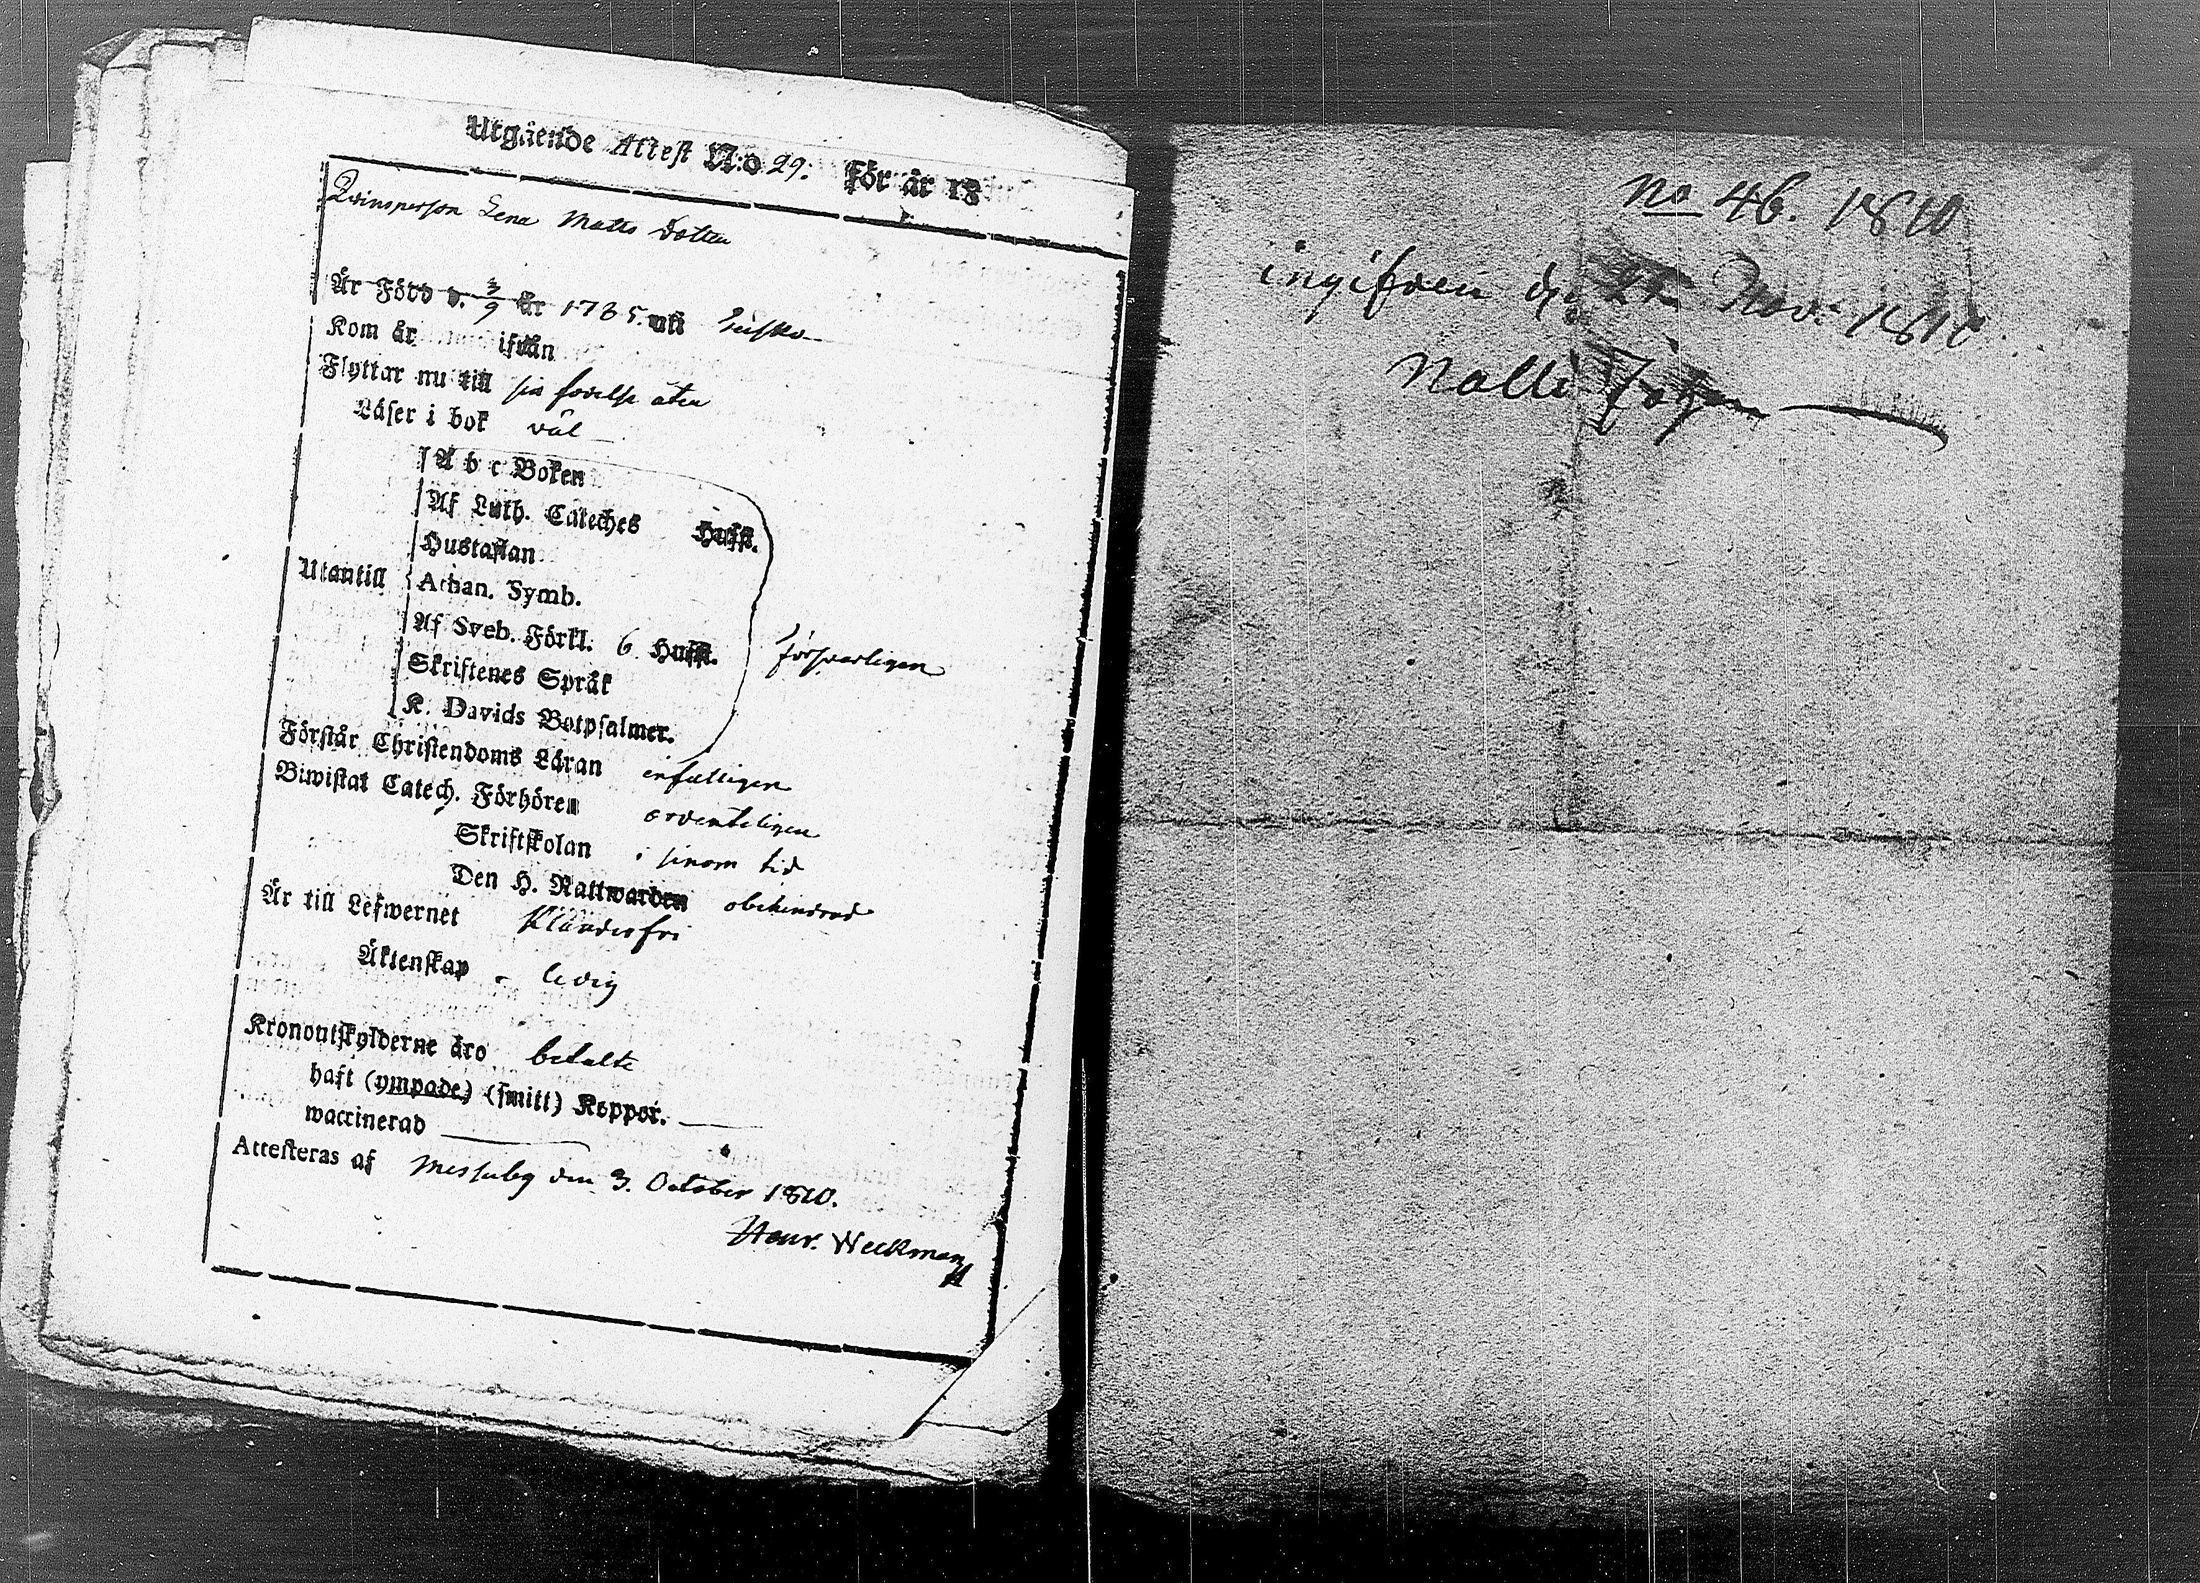 Utgående Attest N:o 29. För år 18
Qvinsperson Lena Matts dotter
Är Född d. 3/9 år 1785. uti
Kom år ifrån
Flyttar nu till sin födelse
Läser i bok väl
A b c Boken
Af Luth. Cateches Hufst.
Hustaflan
Utantill Athan. Symb.
Af Sveb. Förkl. 6 Hufst. försvarligen
Skriftenes Språk
K. Davids Botpsalmer.
Förstår Christendoms Läran enfalligen
Biwistat Catech. Förhören ordenteligen
Skriftskolan i sinom tid
Den H. Nattwarden obehindrad
Är till Lefwernet Klanderfri
Äktenskap - ledig
Kronoutskylderne äro betalte
haft (ympade) (smitt) Koppor.
waccinerad
Attesteras af Messuby den 3. October 1810.
Henr. Weckman
No 46. 1810
ingifven d. Nov: 1810